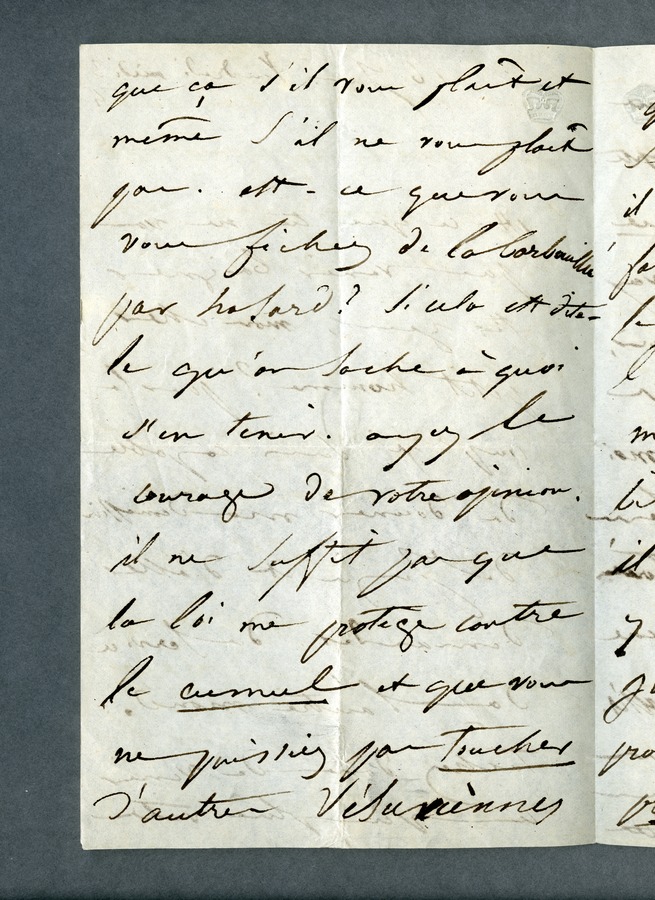 que ça s'il vous plait et
même s'il ne vous plait
pas. est-ce que vous
vous fichez de la Corbeille
par hasard? Si cela est dites-
le qu'on sache à quoi
s'en tenir. ayez le
courage de votre opinion.
il ne suffit pas que
la loi me protège contre
le cumul et que vous
ne puissiez pas toucher
d'autres Vésuviennes